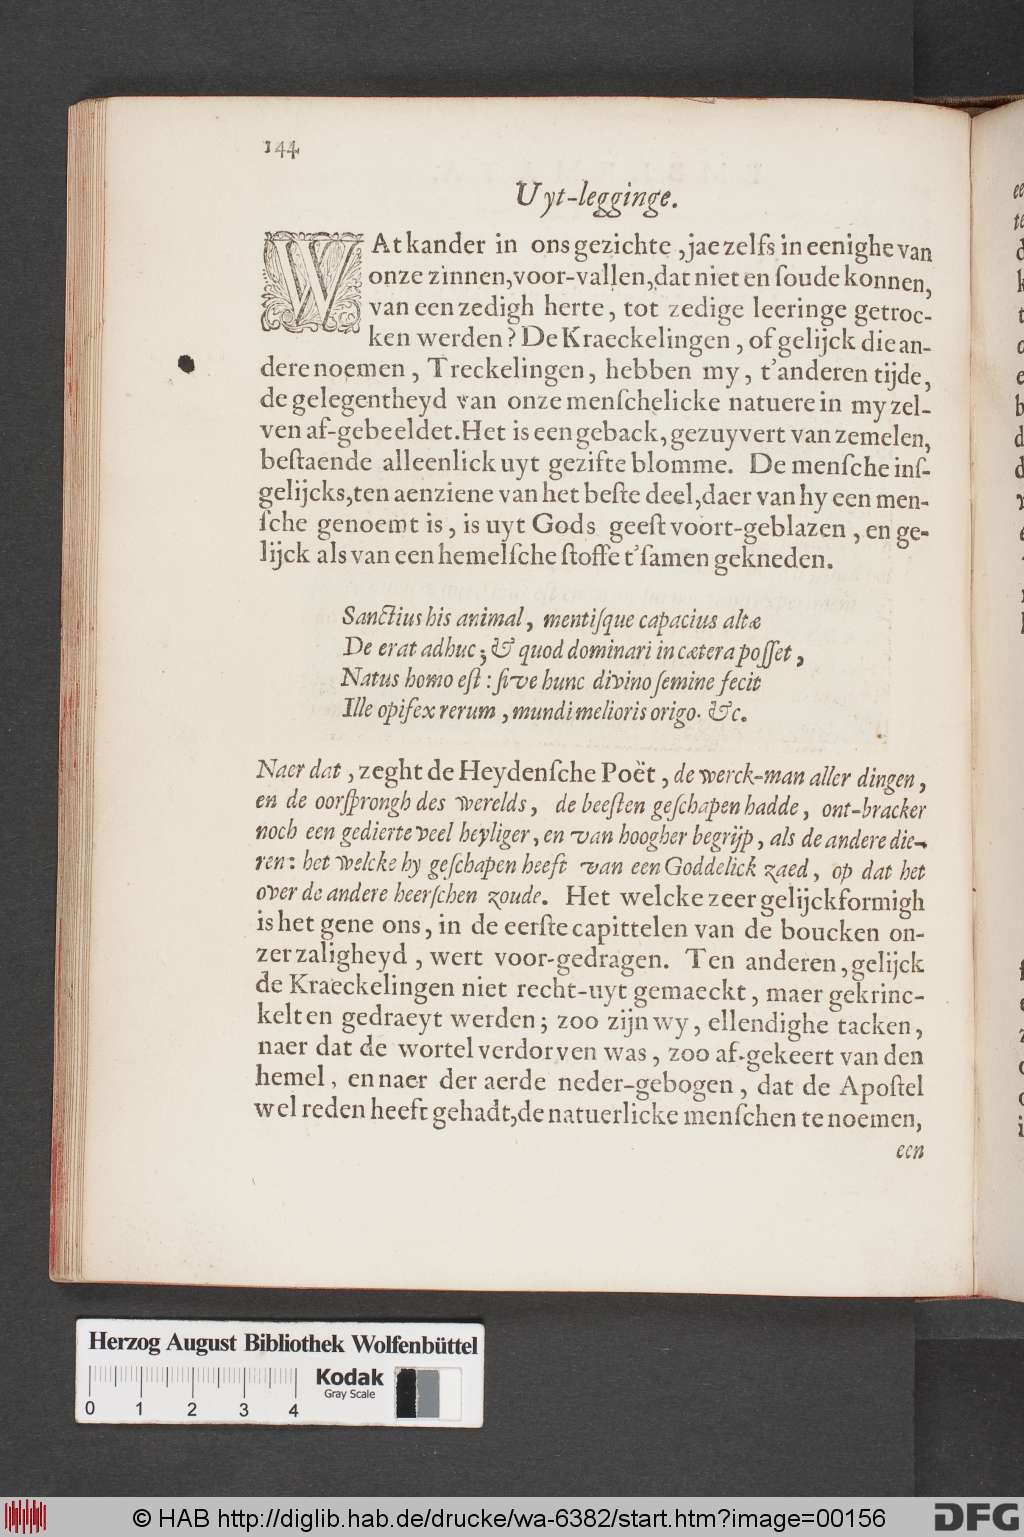 144
Uyt-legginge.
WAt kander in ons gezichte, jae zelfs in eenighe van
onze zinnen, voor-vallen, dat niet en ſoude konnen,
van een zedigh herte, tot zedige leeringe getroc-
ken werden? De Kraeckelingen, of gelijck die an-
dere noemen, Treckelingen, hebben my, t'anderen tijde,
de gelegentheyd van onze menſchelicke natuere in my zel-
ven af-gebeeldet. Het is een geback, gezuyvert van zemelen,
beſtaende alleenlick uyt gezifte blomme. De menſche inſ-
gelijcks, ten aenziene van het beſte deel, daer van hy een men-
ſche genoemt is, is uyt Gods geeſt voort-geblazen, en ge-
lijck als van een hemelſche ſtoffe t'ſamen gekneden.
Sanctius his animal, mentiſque capacius altæ
De erat adhuc; & quod dominari in cætera poſſet,
Natus homo eſt: ſive hunc divino ſemine fecit
Ille opifex rerum, mundi melioris origo. &c.
Naer dat, zeght de Heydenſche Poët, de werck-man aller dingen,
en de oorſprongh des werelds, de beeſten geſchapen hadde, ont-bracker
noch een gedierte veel heyliger, en van hoogher begrijp, als de andere die-
ren: het welcke hy geſchapen heeft van een Goddelick zaed, op dat het
over de andere heerſchen zoude. Het welcke zeer gelijckformigh
is het gene ons, in de eerſte capittelen van de boucken on-
zer zaligheyd, wert voor-gedragen. Ten anderen, gelijck
de Kraeckelingen niet recht-uyt gemaeckt, maer gekrinc-
kelt en gedraeyt werden; zoo zijn wy, ellendighe tacken,
naer dat de wortel verdorven was, zoo af-gekeert van den
hemel, en naer der aerde neder-gebogen, dat de Apoſtel
wel reden heeft gehadt, de natuerlicke menſchen te noemen,
een
Herzog August Bibliothek Wolfenbüttel
Kodak
Gray Scale
0 1 2 3 4
© HAB http://diglib.hab.de/drucke/wa-6382/start.htm?image=00156
DFG